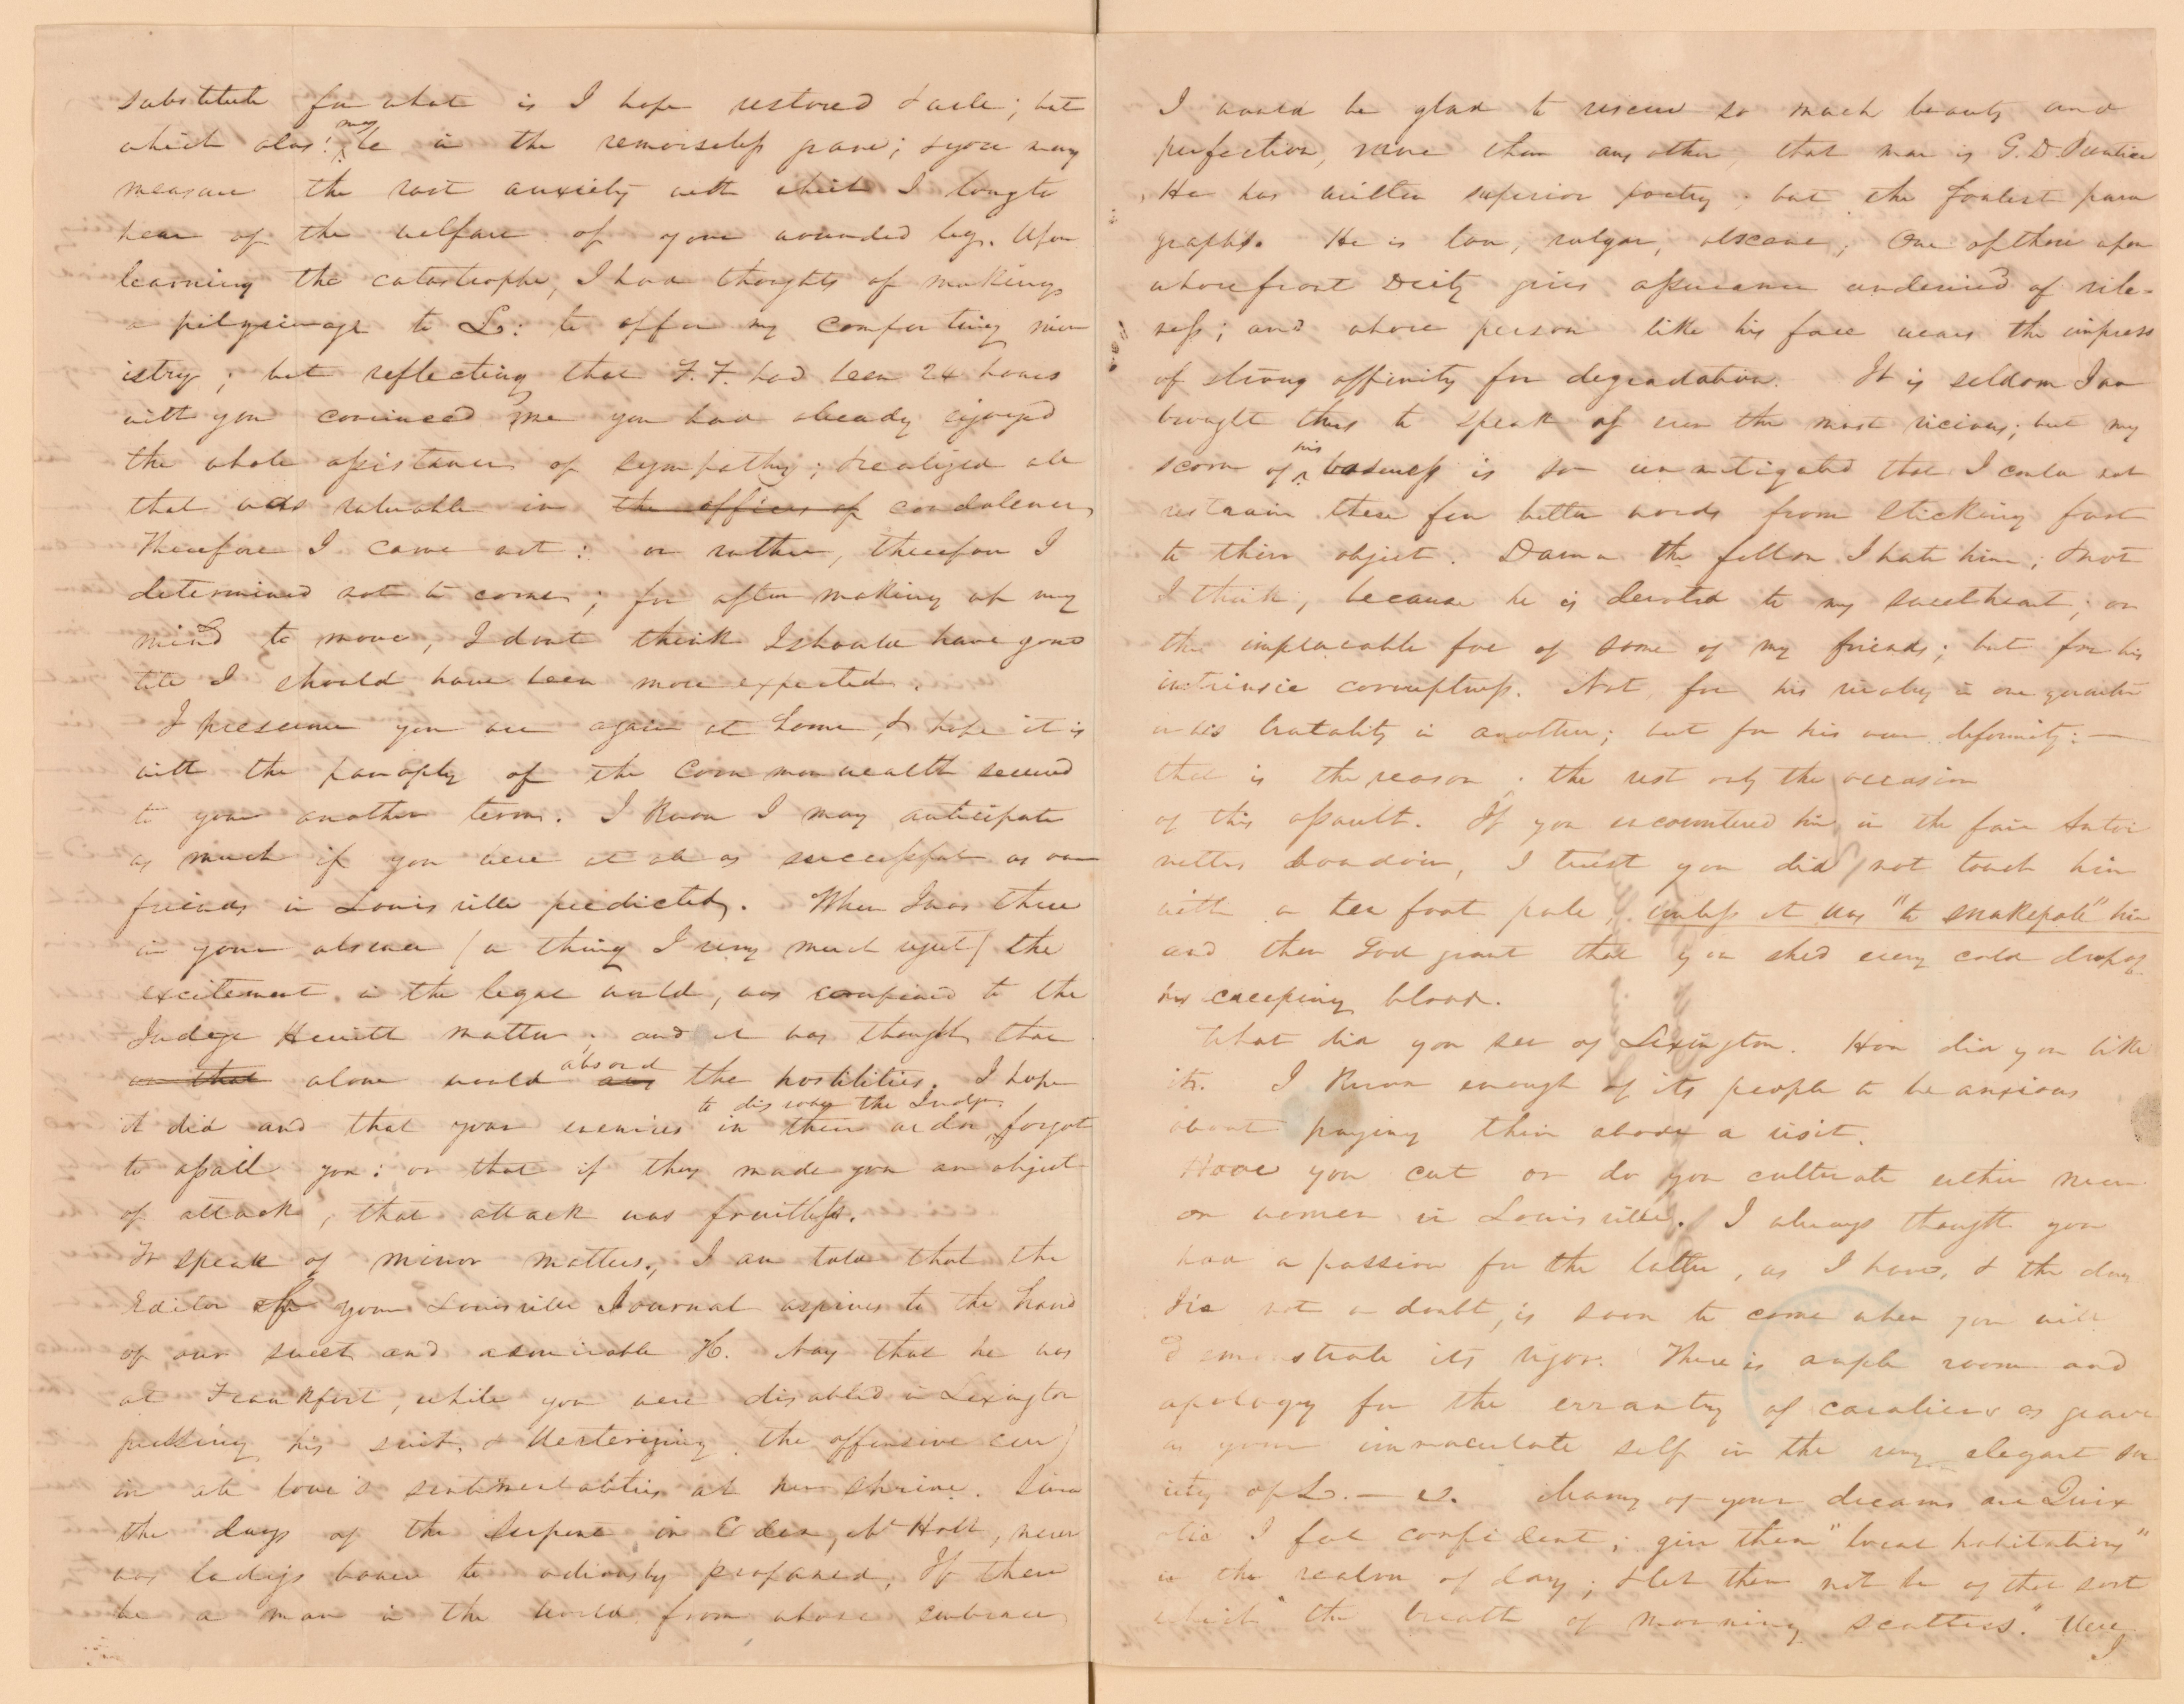 substitute for what is I hope restored & safe; but
which alas! may be in the remorseless grave; & you may
measure the vast anxiety with which I long to
hear of the welfare of your wounded leg. Upon
learning the catastrophe, I had thoughts of making
a pilgrimage to L: to offer my comforting min
istry; but reflecting that F.F. had been 24 hours
with you convinced me you had already enjoyed
the whole assistance of sympathy; & realized all
that was valuable in the offices of condolence,
Therefore I came not: or rather, therefore I
determined not to come; for after making up my
mind to move, I dont think I should have gone
till I should have been more expected.
I presume you are again at home, & hope it is
with the panoply of the Commonwealth secured
to you another term. I know I may anticipate
as much if you were at all as successful as our
friends in Louisville predicted. When I was there
in your absence (a thing I very much regret) the
excitement in the legal world, was confined to the
Judge Hewitt matter; and it was thought that
or that alone would absorb any the hostilities. I hope
it did and that your enemies in their ardor to disrobe the Judge, forgot
to assail you: or that if they made you an object
of attack, that attack was fruitless.
To speak of minor matters, I am told that the
Editor of your Louisville Journal aspires to the hand
of our sweet and admirable H. Nay that he was
at Frankfort, while you were disabled in Lexington
pressing his suit, & Werterizing (the offensive cur)
in all love's sentimentalities at her shrine. Since
the days of the Serpent in Eden, Mr Holt, never
was ladys bower so odiously profaned; If there
be a man in the world from whose embrace
I would be glad to rescue so much beauty and
perfection, more than any other, that man is G.D. Prentice
He has written superior poetry; but the foulest para
graphs. He is low, vulgar, obscene; One of those upon
whose front Deity gives assurance undenied of vile-
ness; and whose person like his face wears the impress
of strong affinity for degradation. It is seldom I am
brought thus to speak of even the most vicious; but my
scorn of his baseness is so unmitigated that I could not
restrain these few bitter words from sticking fast
to their object. Damn the fellow I hate him; & not
I think, because he is devoted to my sweetheart; or
the implacable foe of some of my friends; but for his
intrinsic corruptness. Not, for his rivalry in one quarter
or his brutality in another; but for his own deformity:—
that is the reason; the rest only the occasion
of this assault. If you encountered him in the fair Antoi
nettes boudoir, I trust you did not touch him
with a ten foot pole, unless it was "to snakepole" him
and then God grant that you shed every cold drop of
his creeping blood.
What did you see of Lexington. How did you like
it. I know enough of its people to be anxious
about paying their abode a visit.
Have you cut or do you cultivate either men
or women in Louisville. I always thought you
had a passion for the latter, as I have, & the day
I've not a doubt, is soon to come when you will
demonstrate its vigor. There is ample room and
apology for the errantry of cavaliers as grave
as your immaculate self in the very elegant so
ciety of L.—e. Many of your dreams are Quix
otic I feel confident; give them "local habitations"
in the realm of day; & let them not be of that sort
which "the breath of morning scatters." Were
I